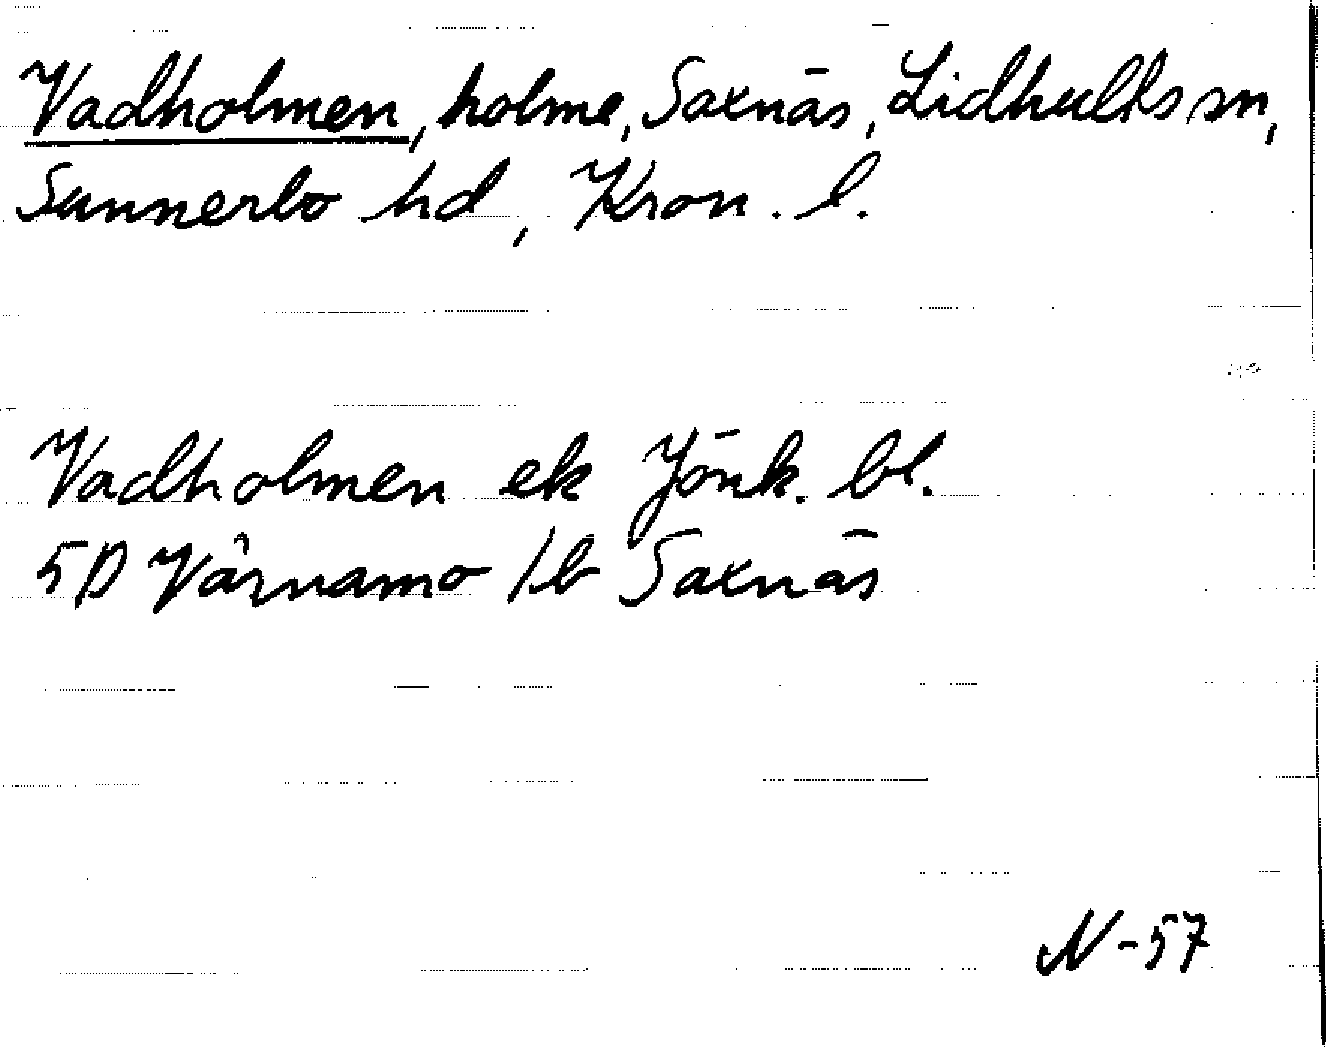 Vadholmen, holme, Saxnäs, Lidhults sn,
Sunnerbo hd, Kron. l.
Vadholmen ek Jönk. bl.
5D Värnamo 1b Saxnäs
N-57